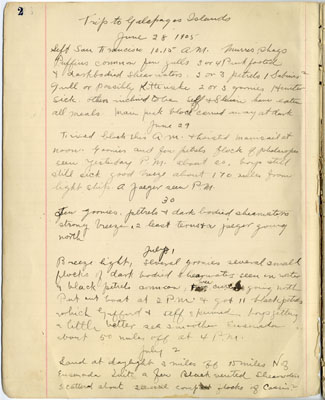 2
Trip to Galapagos Islands
June 28 1905
Left San Francisco 10.15 A.M. Murres Shags
Puffins common few gulls 3 or 4 Pinkfooted
& dark bodied Shearwaters. 2 or 3 petrels 1 Sabines
Gull or Possibly Kittewake 2 or 3 goonies Hunter
sick others inclined to be. eat
all meals. Main peak block carried away at dark
June 29
Tiried block this A.M. & hoisted mainsail at
noon. Goonies and few petrels flock of phalaropes
seen yesterday P.M. about 20. boys still
still sick good breeze about 170 miles from
light ship. A Jaeger seen P.M.
30
Few goonies. petrels & dark bodied shearwaters
strong breeze. 2 least terns & jaeger going
north
July 1
Breeze light, several goonies several small
flocks of dark bodied Shearwaters seen on water
& black petrels common, going north
Put out boat at 2 P.M. & got 11 black petrels
which Gifford & self skinned. boys getting
a little better sea smoother Ensenada
about 50 miles off at 4 P.M.
July 2
Land at daylight 2 miles off 15 miles N of
Ensenada Quite a few Black vented Shearwaters
scattered about several flocks of Cassins